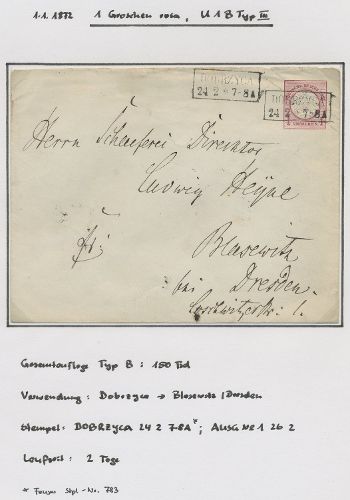 1.1.1872 1 Groschen rosa, U 1 B Typ III
DOBRZYCA
24 2 * 7-8A
DOBRZYCA
24 2 * 7-8A
Herrn Schaeferei Direktor
Ludwig Heyne
Fr:
Blasewitz
bei Dresden.
1.
Gesamtauflage Typ B : 150 Tsd
Verwendung : Dobrzyca → Blasewitz/Dresden
Stempel : DOBRZYCA 24 2 7-8A* ; AUSG No 1 26 2
Laufzeit : 2 Tage
* Feuser Stpl-No. 783